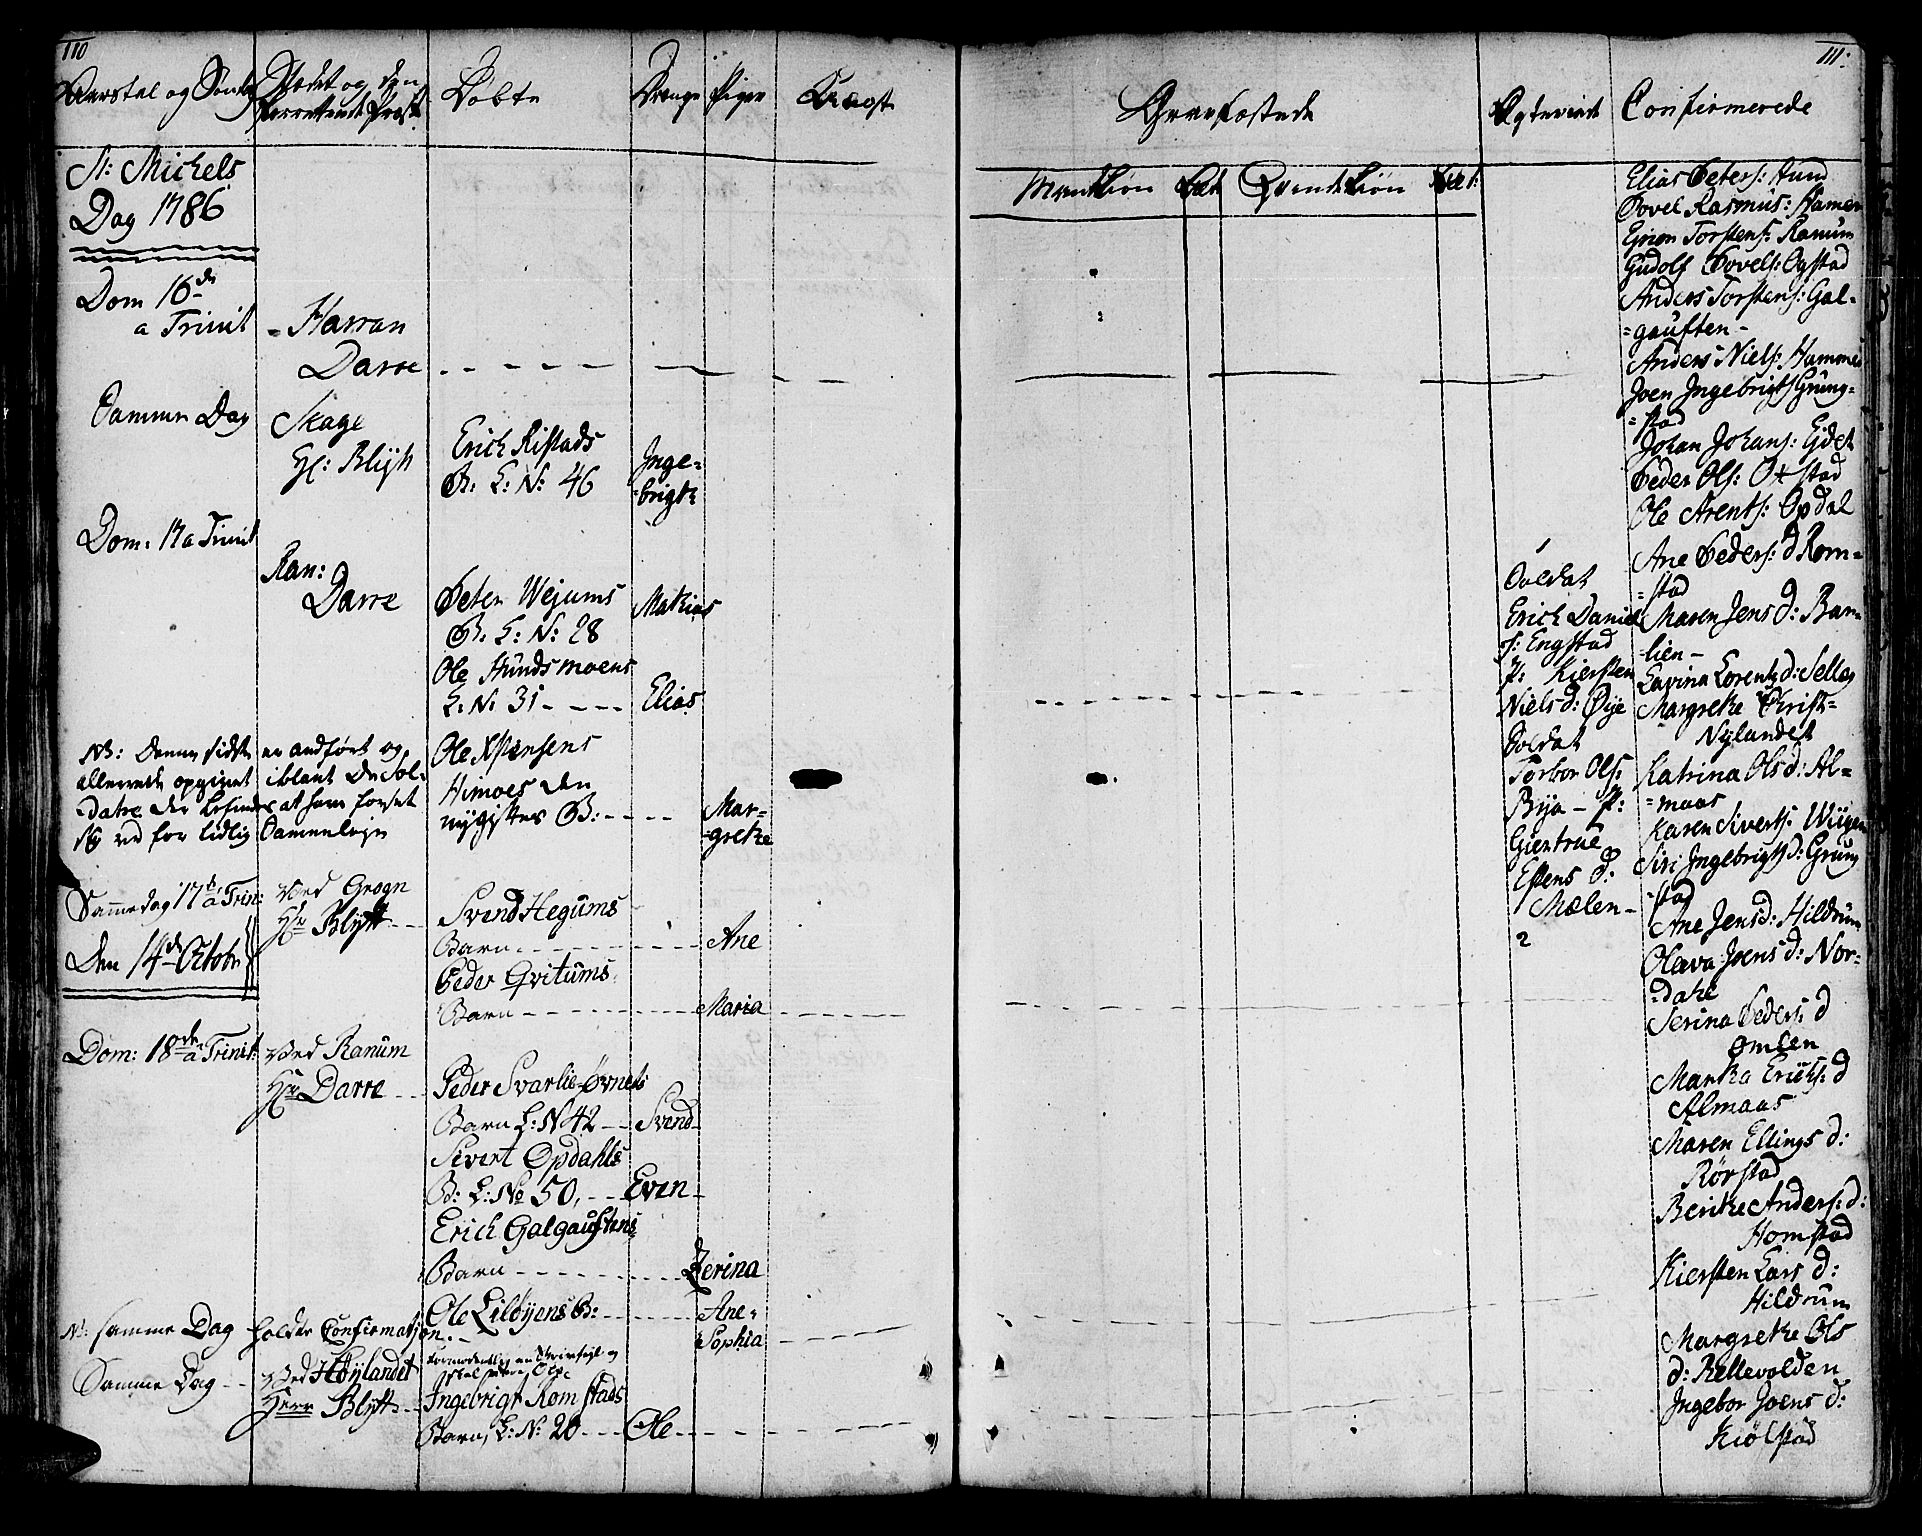 110
Aarstal og Sønd
Stædet og den
Forrettende Præst
Døbte
Drenge
Piger
St: Michels
Dag 1786
Dom 16de
a Trinit
Harran
Darre
Samme Dag
Skage
Hl: Blijtt
Erich Ristads
B: L: N: 46
Inge=
=brigt
Dom: 17 a Trinit
Ran:
Darre
Peter Wejums
B: L: N: 28
Mathias
Ole Hundsmoens
L: N: 31
Elias
NB: Denne sidste er andført og
allerede opgivet iblant De Sol-
datre der befindes at have forset
sig ved for tidlig Sammenleje
Ole Stensens
Himoes den
nygiftes B:
Mar=
=grethe
Sammedag 17de a Trin:
Ved Grogn
Hr Blytt
Svend Hegums
Barn
Ane
Den 14de Octobr
Peder Qvitums
Barn
Maria
Dom: 18de a Trinit:
Ved Ranum
Hr Darre
Peder Svarlie-Øvnets
Barn L: N 42
Svend
Sivert Opdahls
B: L: No 50,
Even
Erich Galgauftens
Barn
Zerina
Ole Liløyens B:
Ane-
Sophia
N: samme Dag holdte Confirmatjon.
Samme Dag
Ved Høylandet
Herr Blytt
Ingebrigt Romstads
Barn, L: N: 20
Ole
111:
Confirmerede
Mandkiøn
Qvindekiøn
Soldat
Erich Daniel
s: Engstad
P: Kiersten
Niels d: Øye
Soldat
Torber Ols:
Bya - P:
Giertrue
Estens d:
Mælen
2
Elias Peters: Aund
Povel Rasmus: Hamer
Grion Torstens: Ranum
Gudolf Povels: Ogstad
Anders Torstens: Gal=
=gauften
Anders Niels: Hammer
Joen Ingebrigts Grung=
=stad
Johan Johans: Ejdet
Peder Ols: Oxstad
Ole Arents: Opdal
Ane Peders: d Rom=
=stad
Maren Jens d: Bar=
=lien
Lavina Lorentz d: Selleg
Margrethe Christ=
Nylandet
Katrina Ols d: Al=
=maas
Karen Siverts: Wiigen
Siri Ingebrigts d: Grung
=stad
Ane Jens d: Hildrum
Olava Joens d: Nor=
=dahl
Serina Peders: d
Omlen
Martha Erichs: d
Almaas
Maren Ellings d:
Rørstad
Berithe Anders: d:
Homstad
Kiersten Lars d:
Hildrum
Margrethe Ols
d: Rellevolden
Ingebor Joens d:
Kiølstad